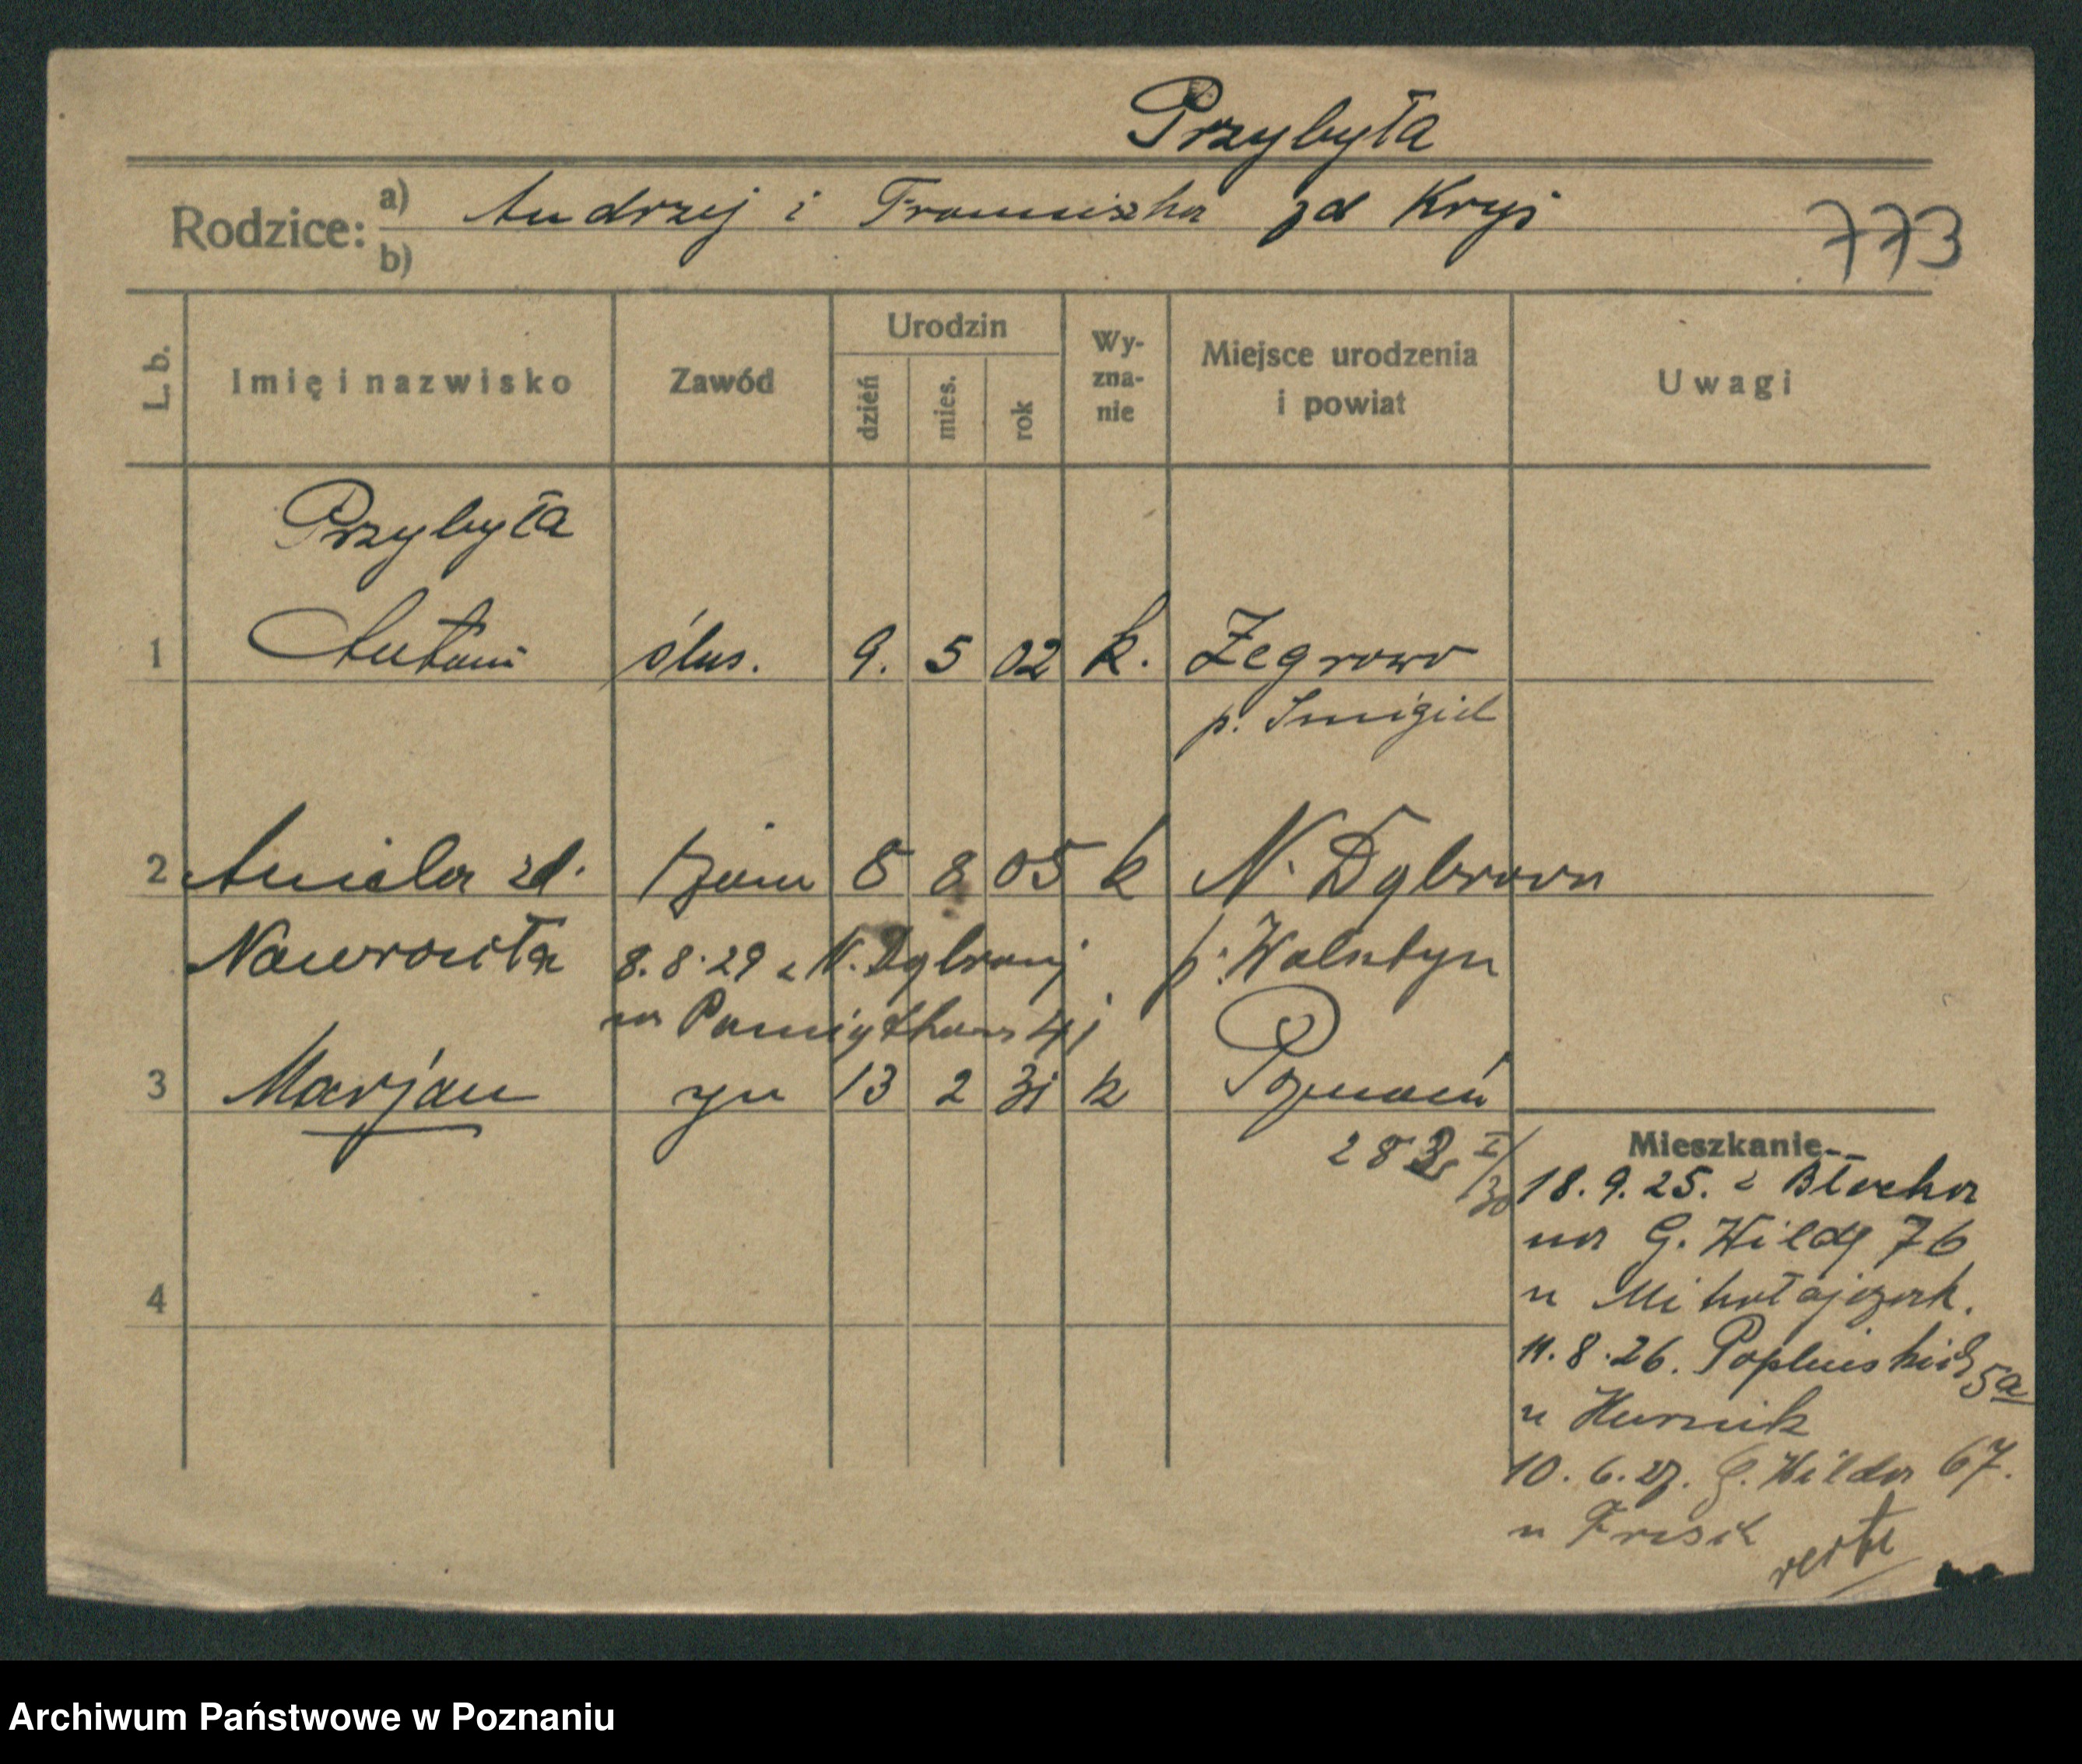 Przybyła
Rodzice: a) Andrzej i Franciszka zd Kryś
b)
773
L. b.
Imię i nazwisko
Zawód
Urodzin
dzień
mies.
rok
Wy-
zna-
nie
Miejsce urodzenia
i powiat
Uwagi
Przybyła
1 Antoni ślus. 9. 5 02 k. Żegrowo
p. Śmigiel
2 Aniela zd. żona 8 05 k N. Dąbrowa
Nawrocka 8.8.29 z N. Dąbrowy p. Wolsztyn
na
3 Marjan syn 13 2 31 k Poznań
Mieszkanie
18.9.25. z Błocka
na G. Wildę 76
u Mikołajczak.
11.8.26. Poplińskich 5a
u Hurnik
10.6.27. G. Wilda 67.
u
verte
4
Archiwum Państwowe w Poznaniu